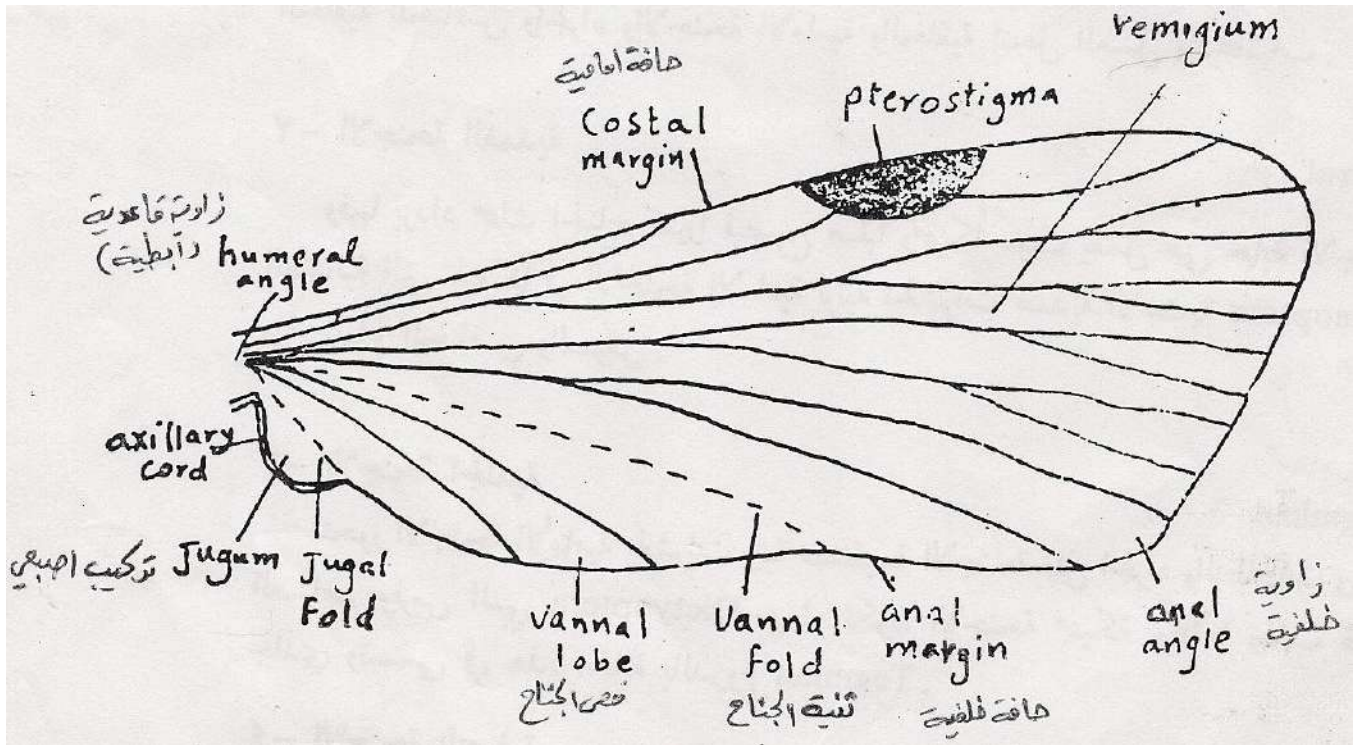 remigium
حافة امامية
Costal
margin
pterostigma
زاوية قاعدية
(ابطية)
humeral
angle
axillary
cord
تركيب اصبعي
Jugum
Jugal
Fold
vannal
lobe
فص الجناح
Vannal
fold
ثنية الجناح
anal
margin
حافة خلفية
anal
angle
زاوية
خلفية